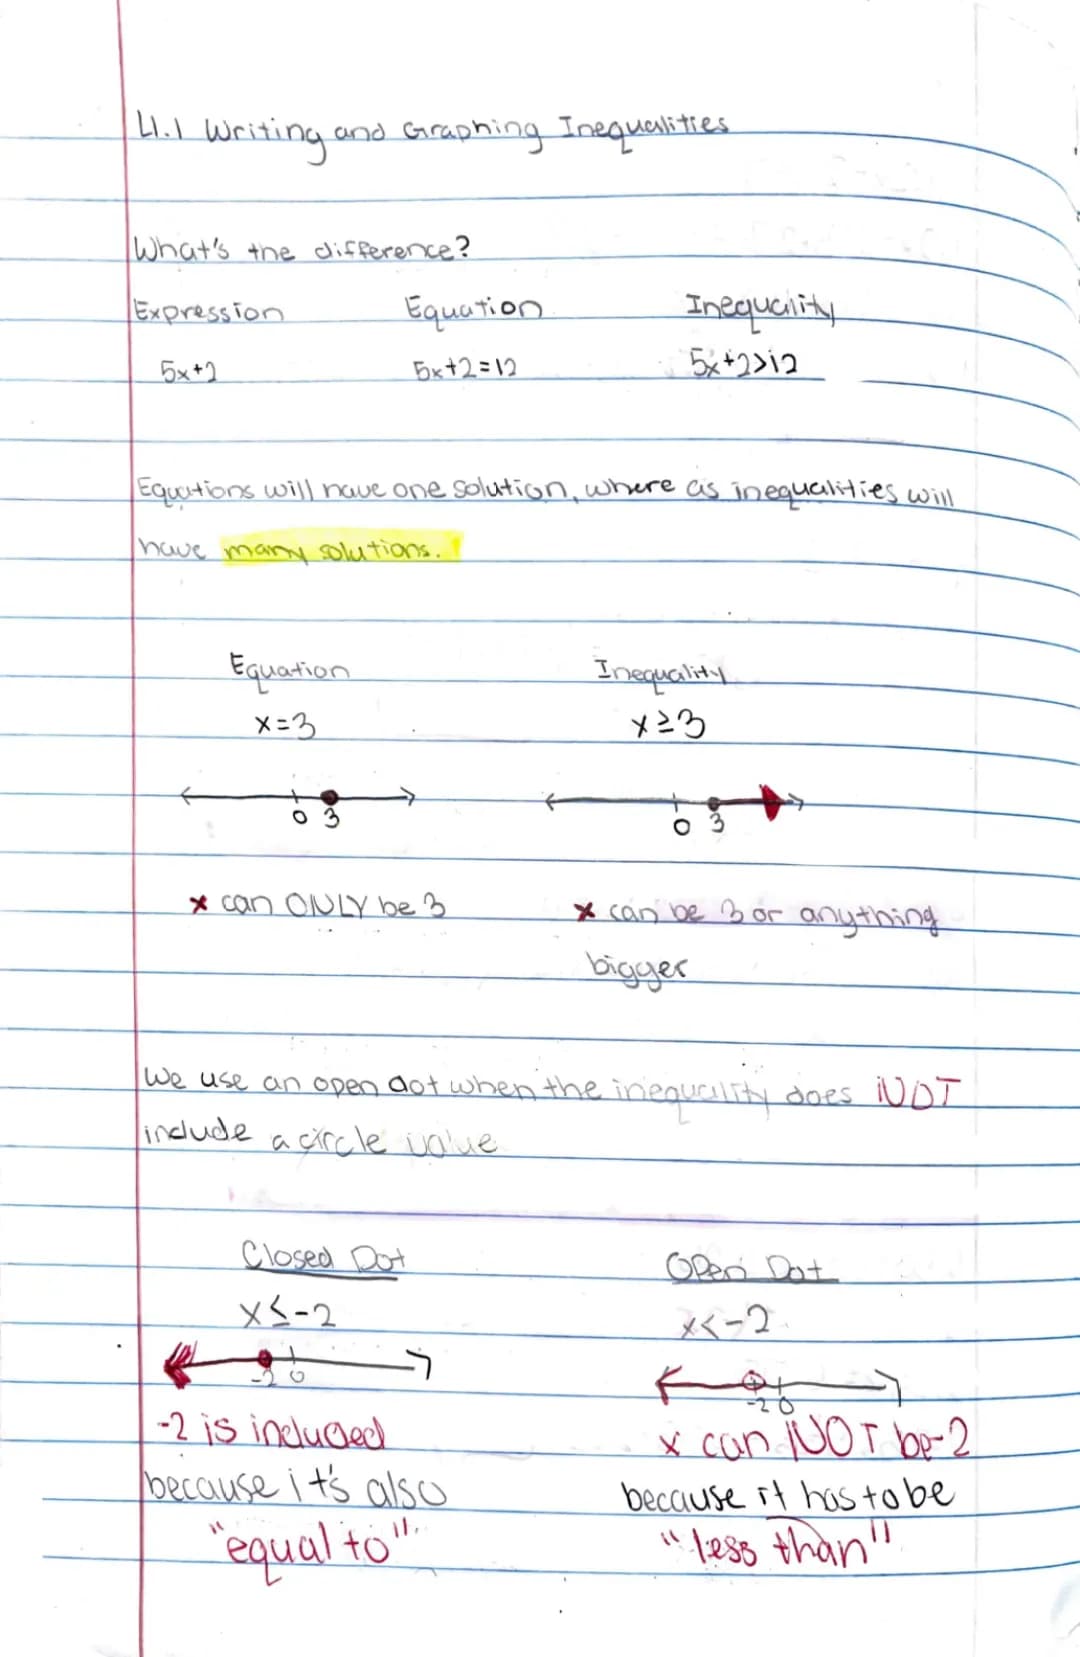 L1.1 Writing and Graphing Inequalities
What's the difference?
Expression Equation Inequality
5x+2 5x+2=12 5x+2>12
Equations will have one solution, where as inequalities will
have many solutions.
Equation Inequality
x=3 x≥3
0 3 0 3
x can ONLY be 3 x can be 3 or anything
bigger
We use an open dot when the inequality does NOT
include a circle value
Closed Dot Open Dot
x≤-2 x<-2
-2 0 -2 0
-2 is included x can NOT be -2
because it's also because it has to be
"equal to" "less than"